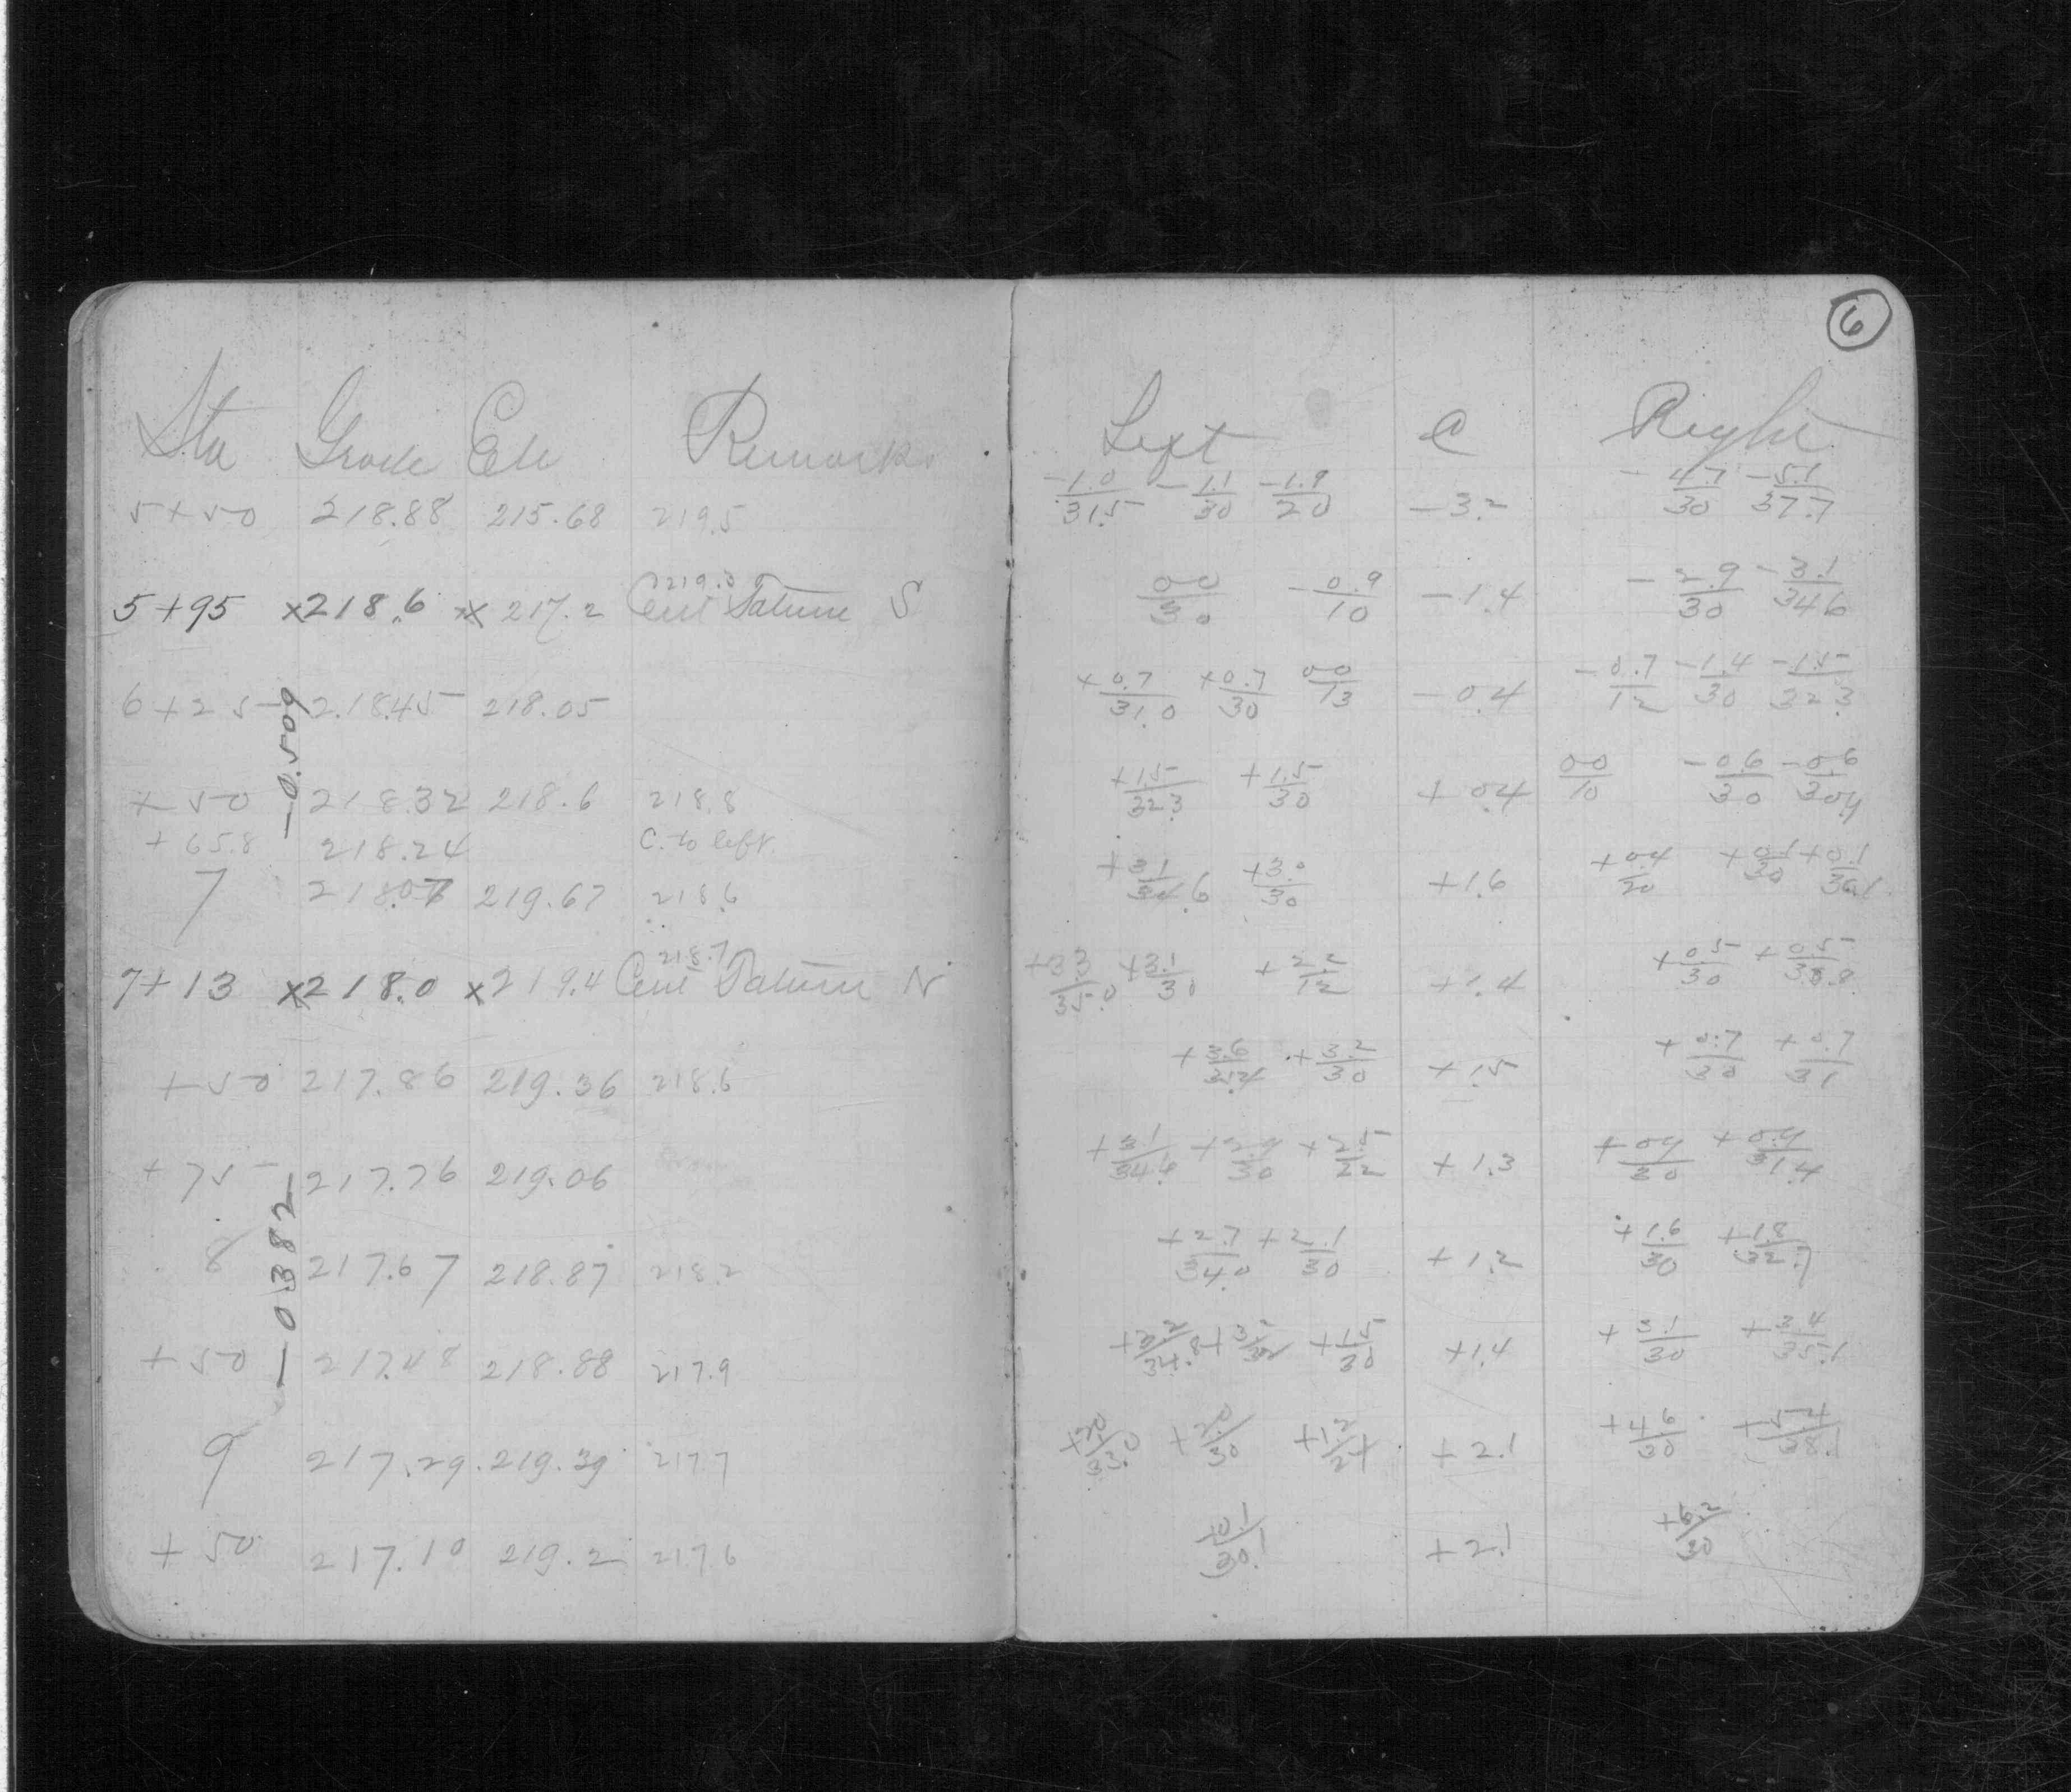 6
Sta Grade Ele Remarks Left C Right
5+50 218.88 215.68 219.5 -1.0/31.5 -1.1/30 -1.9/20 -3.2 -4.7/30 -5.1/37.7
219.3
5+95 x218.6 x217.2 Cent S 0.0/30 -0.9/10 -1.4 -2.9/30 -3.1/34.6
6+25 218.45 218.05 +0.7/31.0 +0.7/30 0.0/13 -0.4 -0.7/12 -1.4/30 -1.5/32.3
-0.509
+50 218.32 218.6 218.8 +1.5/32.3 +1.5/30 +0.4 0.0/10 -0.6/30 -0.6/30.4
+65.8 218.24 C. to left
7 218.07 219.67 218.6 +3.1/34.6 +3.0/30 +1.6 +0.4/20 +0.1/30 +0.1/30.1
218.7
7+13 x218.0 x219.4 Cent N +3.3/35.0 +3.1/30 +2.2/12 +1.4 +0.5/30 +0.5/30.8
+50 217.86 219.36 218.6 +3.6 +3.2/30 +1.5 +0.7/30 +0.7/31
+75 217.76 219.06 +3.1/34.6 +2.9/30 +2.5/22 +1.3 +0.4/30 +0.4/31.4
-0.382
8 217.67 218.87 218.2 +2.7/34.0 +2.1/30 +1.2 +1.6/30 +1.8/32.7
+50 217.48 218.88 217.9 +3.2/34.8 +1.5/30 +1.4 +3.1/30 +3.4/35.1
9 217.29 219.39 217.7 +2.0/33.0 +2.0/30 +1.2/24 +2.1 +4.6/30 +5.4/38.1
+50 217.10 219.2 217.6 +0.1/30.1 +2.1 +6.2/30